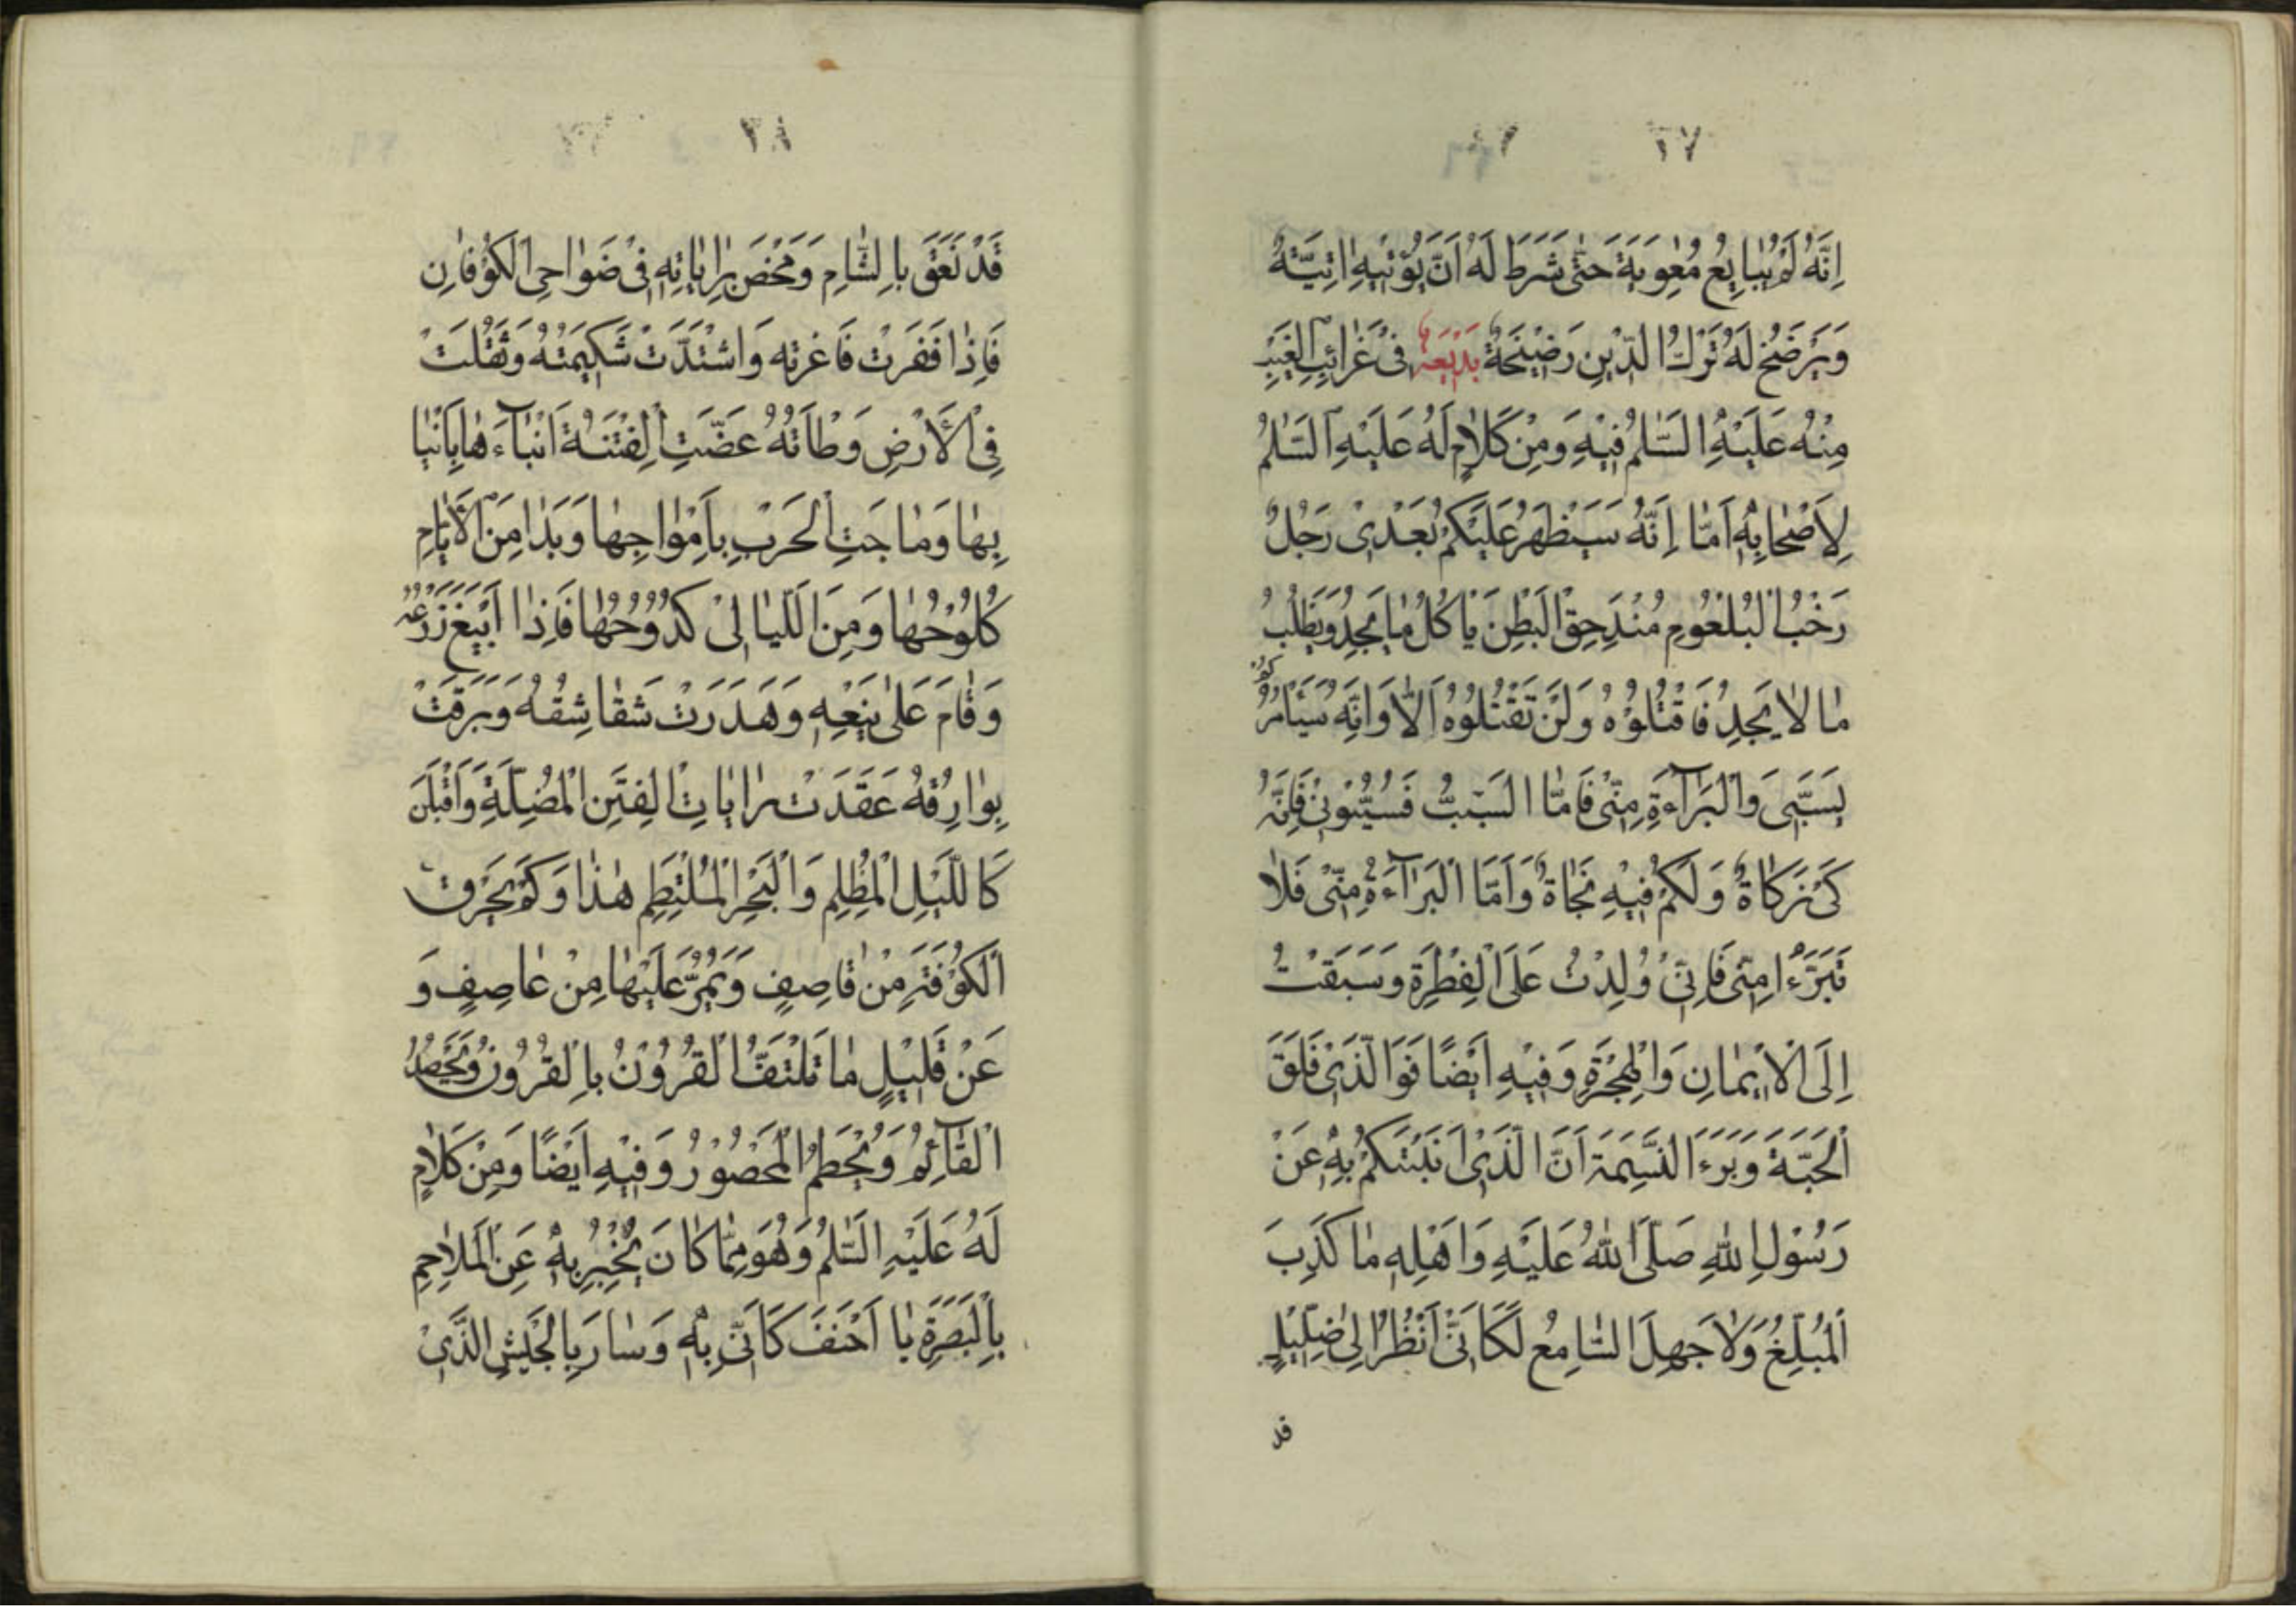 ٢٧
اِنَّهُ لَمْ يُبايِعْ مُعٰوِيَةَ حَتّٰى شَرَطَ لَهُ اَنْ يُؤْتِيَهِ اَتِيَّةً
وَيَرْضَخَ لَهُ تَرْكَ الدّينِ رَضيخَةً بَديعَةٌ فى غَرائِبِ الغَيْبِ
مِنْهُ عَلَيْهِ السَّلٰمُ فيهِ وَمِنْ كَلامٍ لَهُ عَلَيْهِ السَّلٰمُ
لِاَصْحابِهِ اَمّا اِنَّهُ سَيَظْهَرُ عَلَيْكُمْ بَعْدى رَجُلٌ
رَحْبُ البُلْعُومِ مُنْدَحِقُ البَطْنِ يَاكُلُ ما يَجِدُ وَيَطْلُبُ
ما لا يَجِدُ فَاقْتُلُوهُ وَلَنْ تَقْتُلُوهُ اَلا وَاِنَّهُ سَيَامُرُكُمْ
بِسَبّى وَالْبَرآءَةِ مِنّى فَامَّا السَّبُّ فَسُبُّونى فَاِنَّهُ
لى زَكاةٌ وَلَكُمْ فيهِ نَجاةٌ وَاَمَّا الْبَرآءَةُ مِنّى فَلا
تَبَرَّءُا مِنّى فَاِنّى وُلِدْتُ عَلَى الْفِطْرَةِ وَسَبَقْتُ
اِلَى الْايمانِ وَالْهِجْرَةِ وَفيهِ اَيْضًا فَوَالَّذى فَلَقَ
الْحَبَّةَ وَبَرَءَ النَّسَمَةَ اَنَّ الَّذى اَنَبَئَكُمْ بِهِ عَنْ
رَسُولِ اللهِ صَلَّى اللهُ عَلَيْهِ وَاَهْلِهِ ما كَذَبَ
الْمُبَلِّغُ وَلا جَهِلَ السّامِعُ لَكَاَنّى اَنْظُرُ اِلى ضِلّيلٍ
قد
٢٨
قَدْ نَعَقَ بِالشّامِ وَمَخَصَ بِراياتِهِ فى ضَواحِى الْكُوفانِ
فَاِذا فَفَرَتْ فاغرته وَاشْتَدَّتْ شَكيمَتُهُ وَثَقُلَتْ
فِى الْاَرْضِ وَطْاَتُهُ عَضَّتِ الْفِتْنَةُ اَنْبآءَها بِاَنْيا
بِها وَماجَتِ الْحَرْبُ بِاَمْواجِها وَبَدا مِنَ الْاَيّامِ
كُلُوحُها وَمِنَ اللَّيالى كُدُوحُها فَاِذا اَيْنَعَ زَرْعُهُ
وَقامَ عَلى يَنْعِهِ وَهَدَرَتْ شَقاشِقُهُ وَبَرَقَتْ
بِوارِقُهُ عَقَدَتْ راياتِ الْفِتَنِ الْمُضِلَّةِ وَاَقْبَلْنَ
كَاللَّيْلِ الْمُظْلِمِ وَالْبَحْرِ الْمُلْتَطِمِ هٰذا وَكَمْ يَخْرِقُ
الْكُوفَةَ مِنْ قاصِفٍ وَيَمُرُّ عَلَيْها مِنْ عاصِفٍ وَ
عَنْ قَليلٍ ما تَلْتَفُّ الْقُرُونُ بِالْقُرُونِ وَيُحْصَدُ
الْقآئِمُ وَيُحْطَمُ الْمَحْصُورُ وَفيهِ اَيْضًا وَمِنْ كَلامٍ
لَهُ عَلَيْهِ السَّلٰمُ وَهُوَ مِمّا كانَ يُخْبِرُ بِهِ عَنِ الْمَلاحِمِ
بِالْبَصْرَةِ يا اَحْنَفُ كَاَنّى بِهِ وَسارَ بِالْجَيْشِ الَّذى